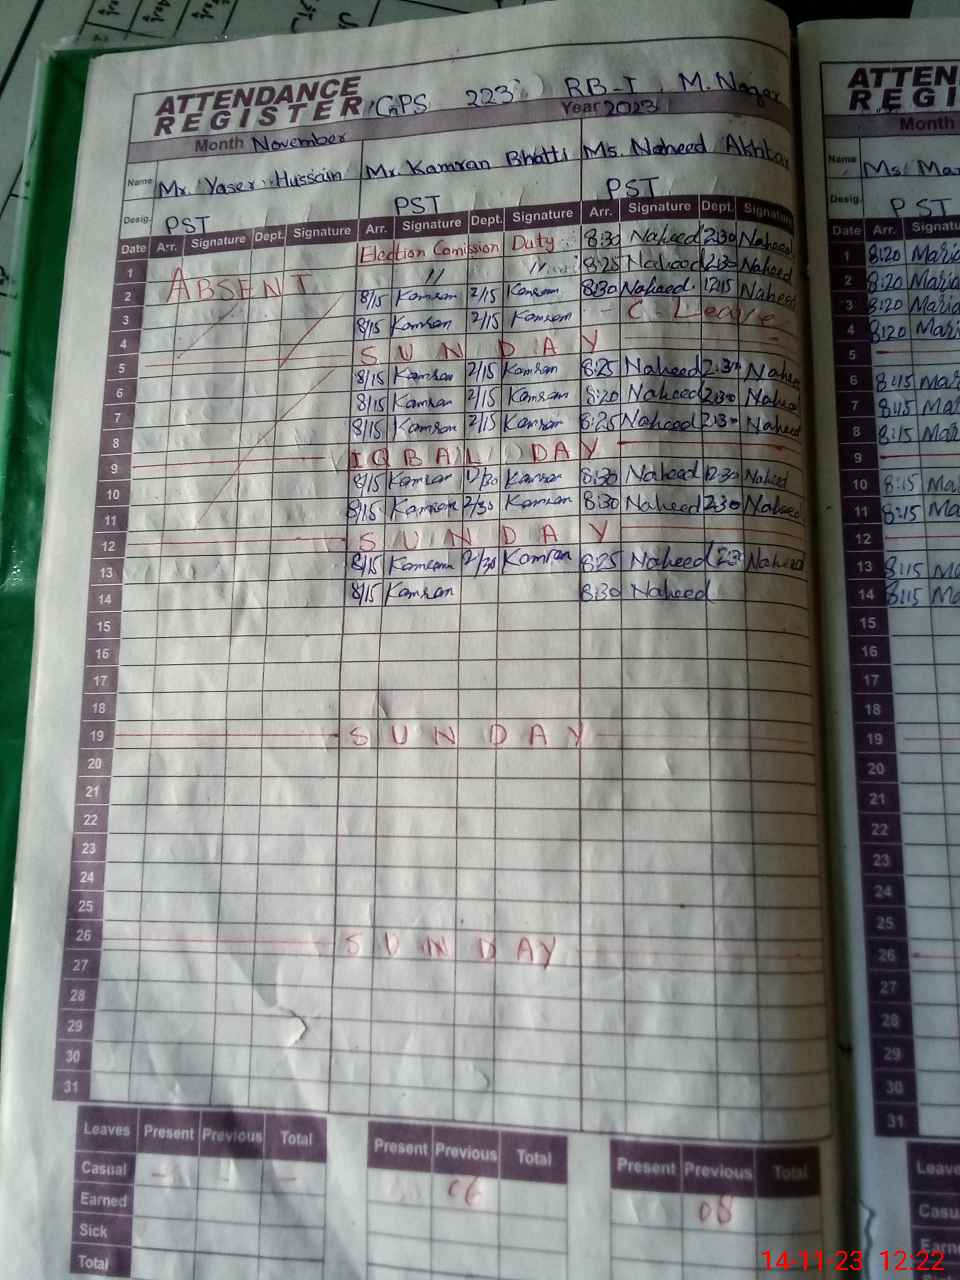 ATTENDANCE REGISTER GPS 223 RB-I M. Nagar
Month November Year 2023
Name Mr. Yaser Hussain Mr. Kamran Bhatti Ms. Naheed Akhtar
Desig. PST PST PST
Date Arr. Signature Dept. Signature Arr. Signature Dept. Signature Arr. Signature Dept. Signature
1 ABSENT Election Comission Duty 8:30 Naheed 2:30 Naheed
2 " " 8:25 Naheed 2:30 Naheed
3 8/15 Kamran 2/15 Kamran 8:30 Naheed 12:15 Naheed
4 8/15 Kamran 2/15 Kamran C. Leave
5 SUNDAY
6 8/15 Kamran 2/15 Kamran 8:25 Naheed 2:30 Naheed
7 8/15 Kamran 2/15 Kamran 8:20 Naheed 2:30 Naheed
8 8/15 Kamran 2/15 Kamran 8:25 Naheed 2:30 Naheed
9 IQBAL DAY
10 8/15 Kamran 12/30 Kamran 8:30 Naheed 12:30 Naheed
11 8/15 Kamran 2/30 Kamran 8:30 Naheed 2:30 Naheed
12 SUNDAY
13 8/15 Kamran 2/30 Kamran 8:25 Naheed 2:30 Naheed
14 8/15 Kamran 8:30 Naheed
15
16
17
18
19 SUNDAY
20
21
22
23
24
25
26 SUNDAY
27
28
29
30
31
Leaves Present Previous Total Present Previous Total Present Previous Total
Casual - - - 06 08
Earned
Sick
Total
ATTEN
REGI
Month
Name Ms. Mar
Desig. PST
Date Arr. Signatu
1 8:20 Maria
2 8:20 Maria
3 8:20 Maria
4 8:20 Maria
5
6 8:15 Mar
7 8:15 Mar
8 8:15 Mar
9
10 8:15 Ma
11 8:15 Ma
12
13 8:15 Ma
14 8:15 Ma
15
16
17
18
19
20
21
22
23
24
25
26
27
28
29
30
31
Leave
Casu
Earn
14-11-23 12:22